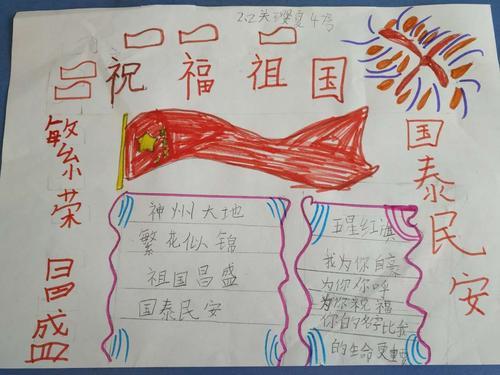 2.2 关璎夏 4号
祝福祖国
繁荣昌盛
国泰民安
神州大地
繁花似锦
祖国昌盛
国泰民安
五星红旗
我为你自豪
为你欢呼
为你祝福
你的名字比我
的生命更重要